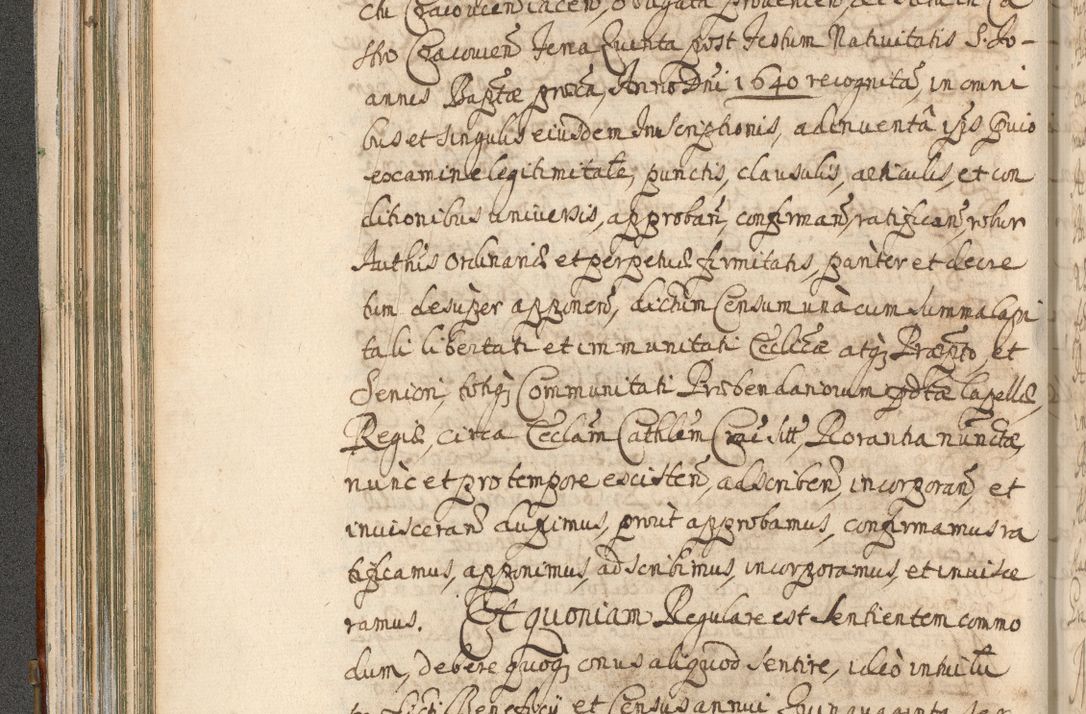 stro Czacovien̄ Feria Quinta post Festum Nativitatis S. Jo-
annis Baptæ proxa, Anno Dni 1640 recognitā, in omni
bus et singulis eiusdem Inscriptionis, adinventâ ipsius pvio
examine legitimitate, punctis, clausulis, articulis, et con
ditionibus universis, approban̄, confirman̄, ratifican̄, robur
Authis Ordinariæ et perpetuæ firmitatis, pariter et decre
tum desuper apponen̄, dictum Censum unà cum summa capi
tali libertati et immunitati Ecclicæ atq; Præpto, et
Seniori, totiq; Communitati Præbendariorum pdtæ Capellæ,
Regiæ, circa Ecclam Cathlem Crac: sitt, Rorantia nunctæ,
nùnc et pro tempore existen̄, adscriben̄, incorporan̄, et
inviscеran̄ duximus, proùt approbamus, confirmamus ra
tificamus, apponimus, adscribimus, incorporamus, et invisce
ramus. Et quoniam Regulare est sentientem commo
dum, debere quoq; onus aliquod sentire, ideò intuitu
Benefcij et Census annui Quinquaginta